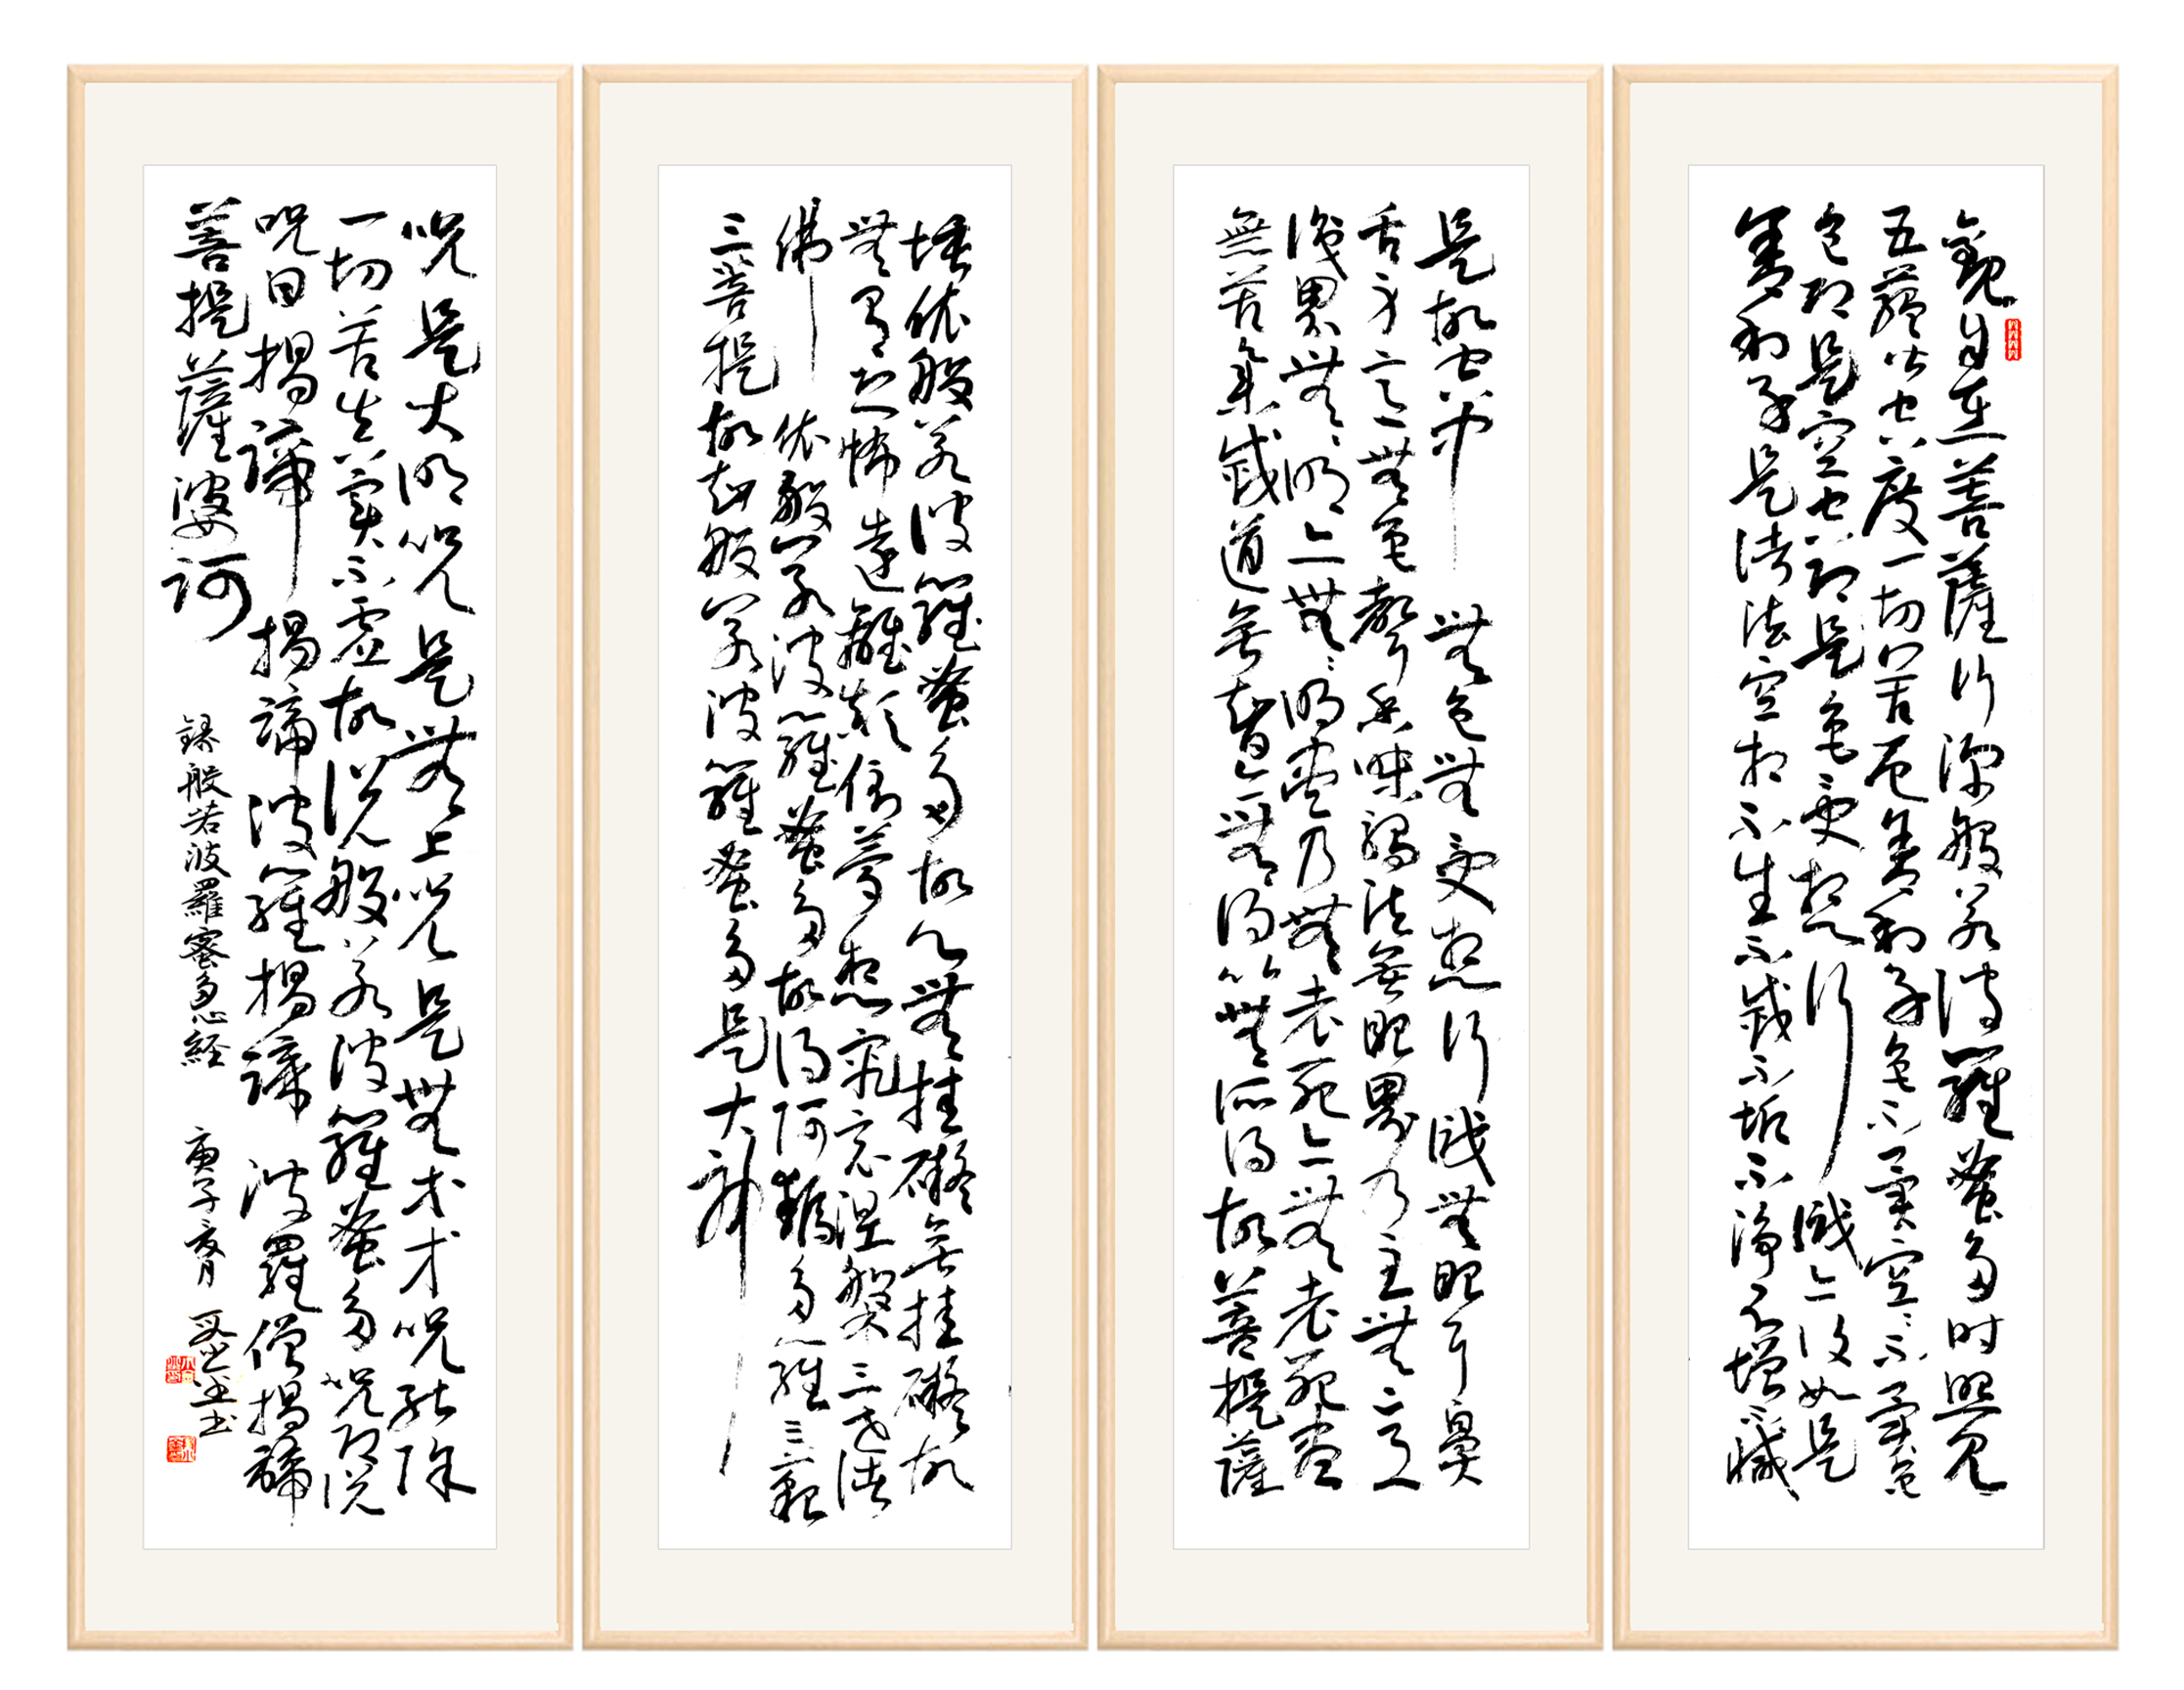 觀自在菩薩行深般若波羅蜜多時照見
五蘊皆空度一切苦厄舍利子色不異空空不異色
色即是空空即是色受想行識亦復如是
舍利子是諸法空相不生不滅不垢不淨不增不減
是故空中無色無受想行識無眼耳鼻
舌身意無色聲香味觸法無眼界乃至無意
識界無無明亦無無明盡乃無老死亦無老死盡
無苦集滅道無智亦無得以無所得故菩提薩
埵依般若波羅蜜多故心無挂礙無挂礙故
無有恐怖遠離顛倒夢想究竟涅槃三世諸
佛依般若波羅蜜多故得阿耨多羅三藐
三菩提故知般若波羅蜜多是大神
咒是大明咒是無上咒是無等等咒能除
一切苦真實不虛故說般若波羅蜜多咒即說
咒曰揭諦揭諦波羅揭諦波羅僧揭諦
菩提薩婆訶 錄般若波羅蜜多心経 庚子夏月 书